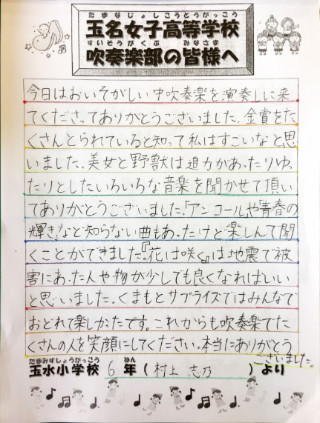 たまなじょしこうとうがっこう
玉名女子高等学校
すいそうがくぶ みなさま
吹奏楽部の皆様へ
今日はおいそがしい中吹奏楽を演奏しに来
てくださってありがとうございました。金賞をた
くさんとられていると知って私はすごいなと思
いました。美女と野獣は迫力があったりゆっ
たりとしたいろいろな音楽を聞かせて頂い
てありがとうございました。「アンコールや「青春の
輝き」など知らない曲もあったけど楽しんで聞
くことができました。『花は咲く』は地震で被
害にあった人や物が少しでも良くなればいい
と思いました。くまもとサプライズではみんなで
おどれて楽しかったです。これからも吹奏楽でた
くさんの人を笑顔にしてください。本当にありがとう
ございました。
たまみずしょうがっこう ねん
玉水小学校 6 年 (村上 志乃) より